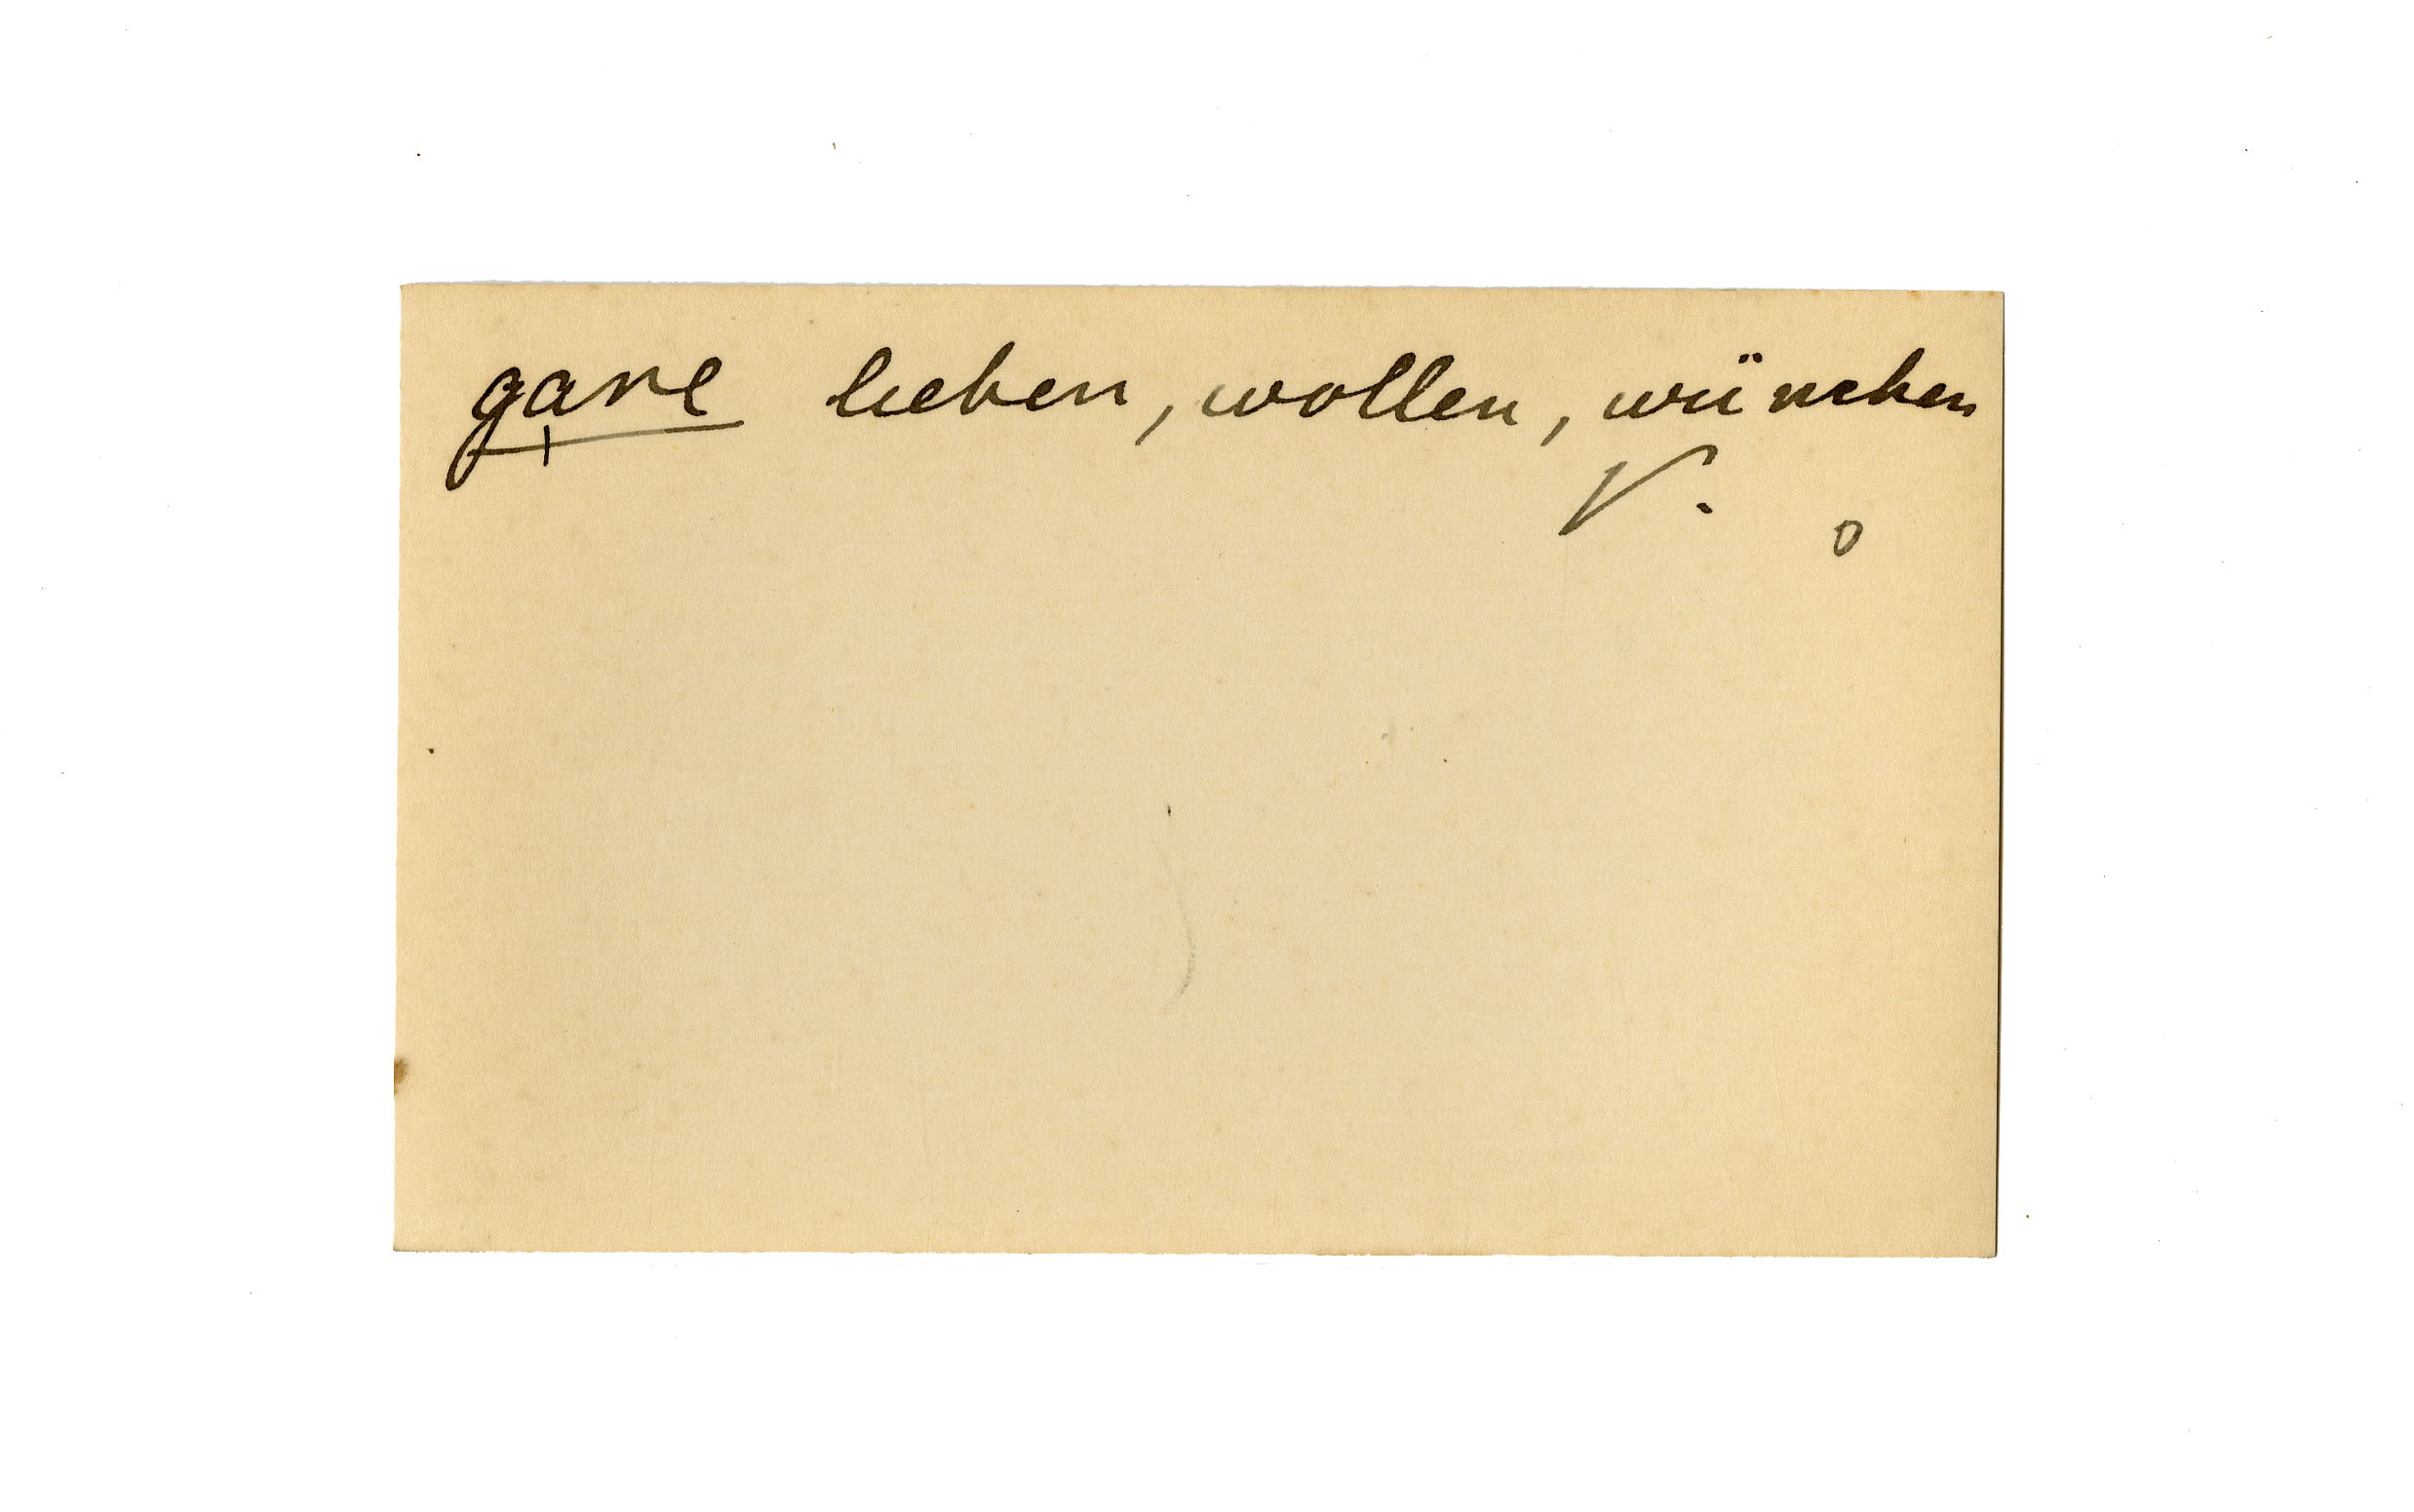 gare lieben, wollen, wünschen
V.
o